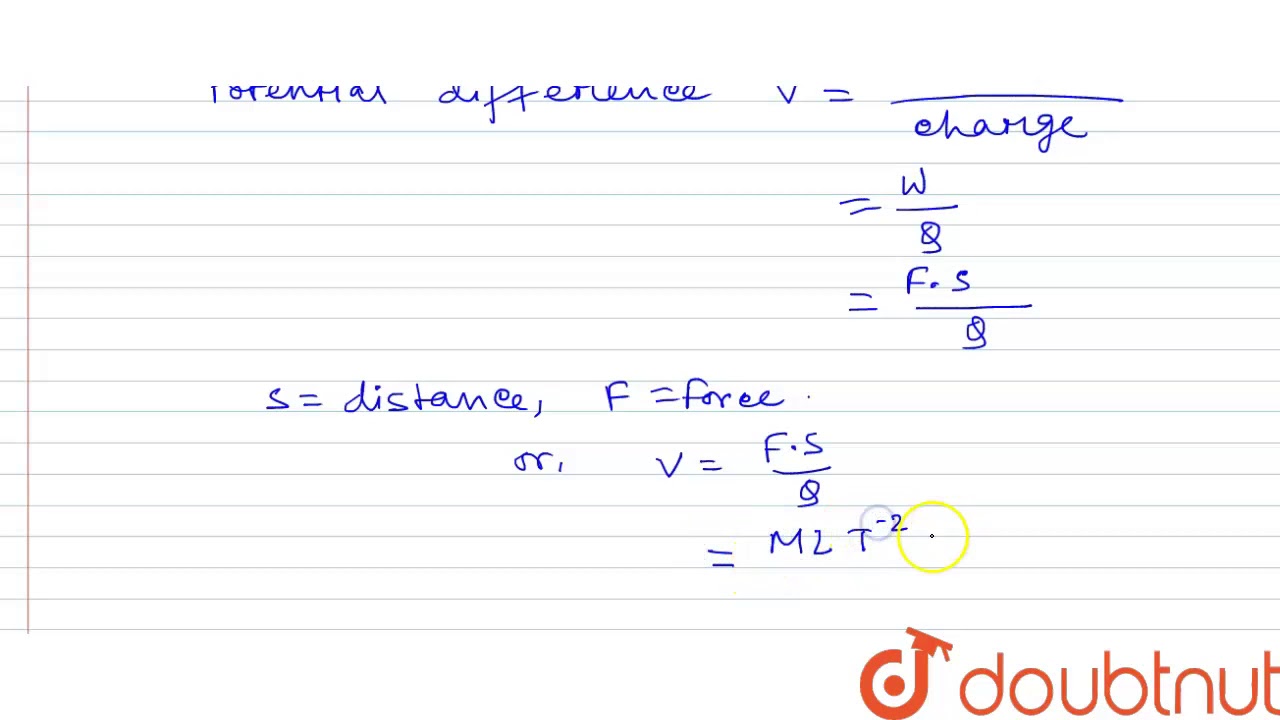 Potential difference V =
charge
= W
Q
= F. S
Q
S = distance, F = force.
or, V = F.S
Q
= M L T⁻²
doubtnut